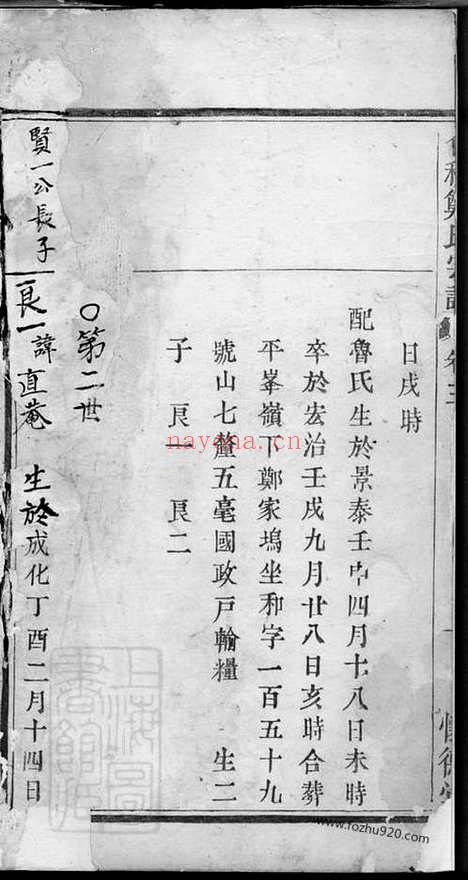 鄭氏宗譜 卷三
日戌時
配魯氏生於景泰壬申四月十八日未時
卒於宏治壬戌九月廿八日亥時合葬
平峯嶺下鄭家塢坐和字一百五十九
號山七釐五毫國政戶輸糧 生二
子 良一 良二
○第二世
賢一公長子
良一諱直菴 生於成化丁酉二月十四日
上海圖書館藏
nayona.cn
www.fozhu920.com